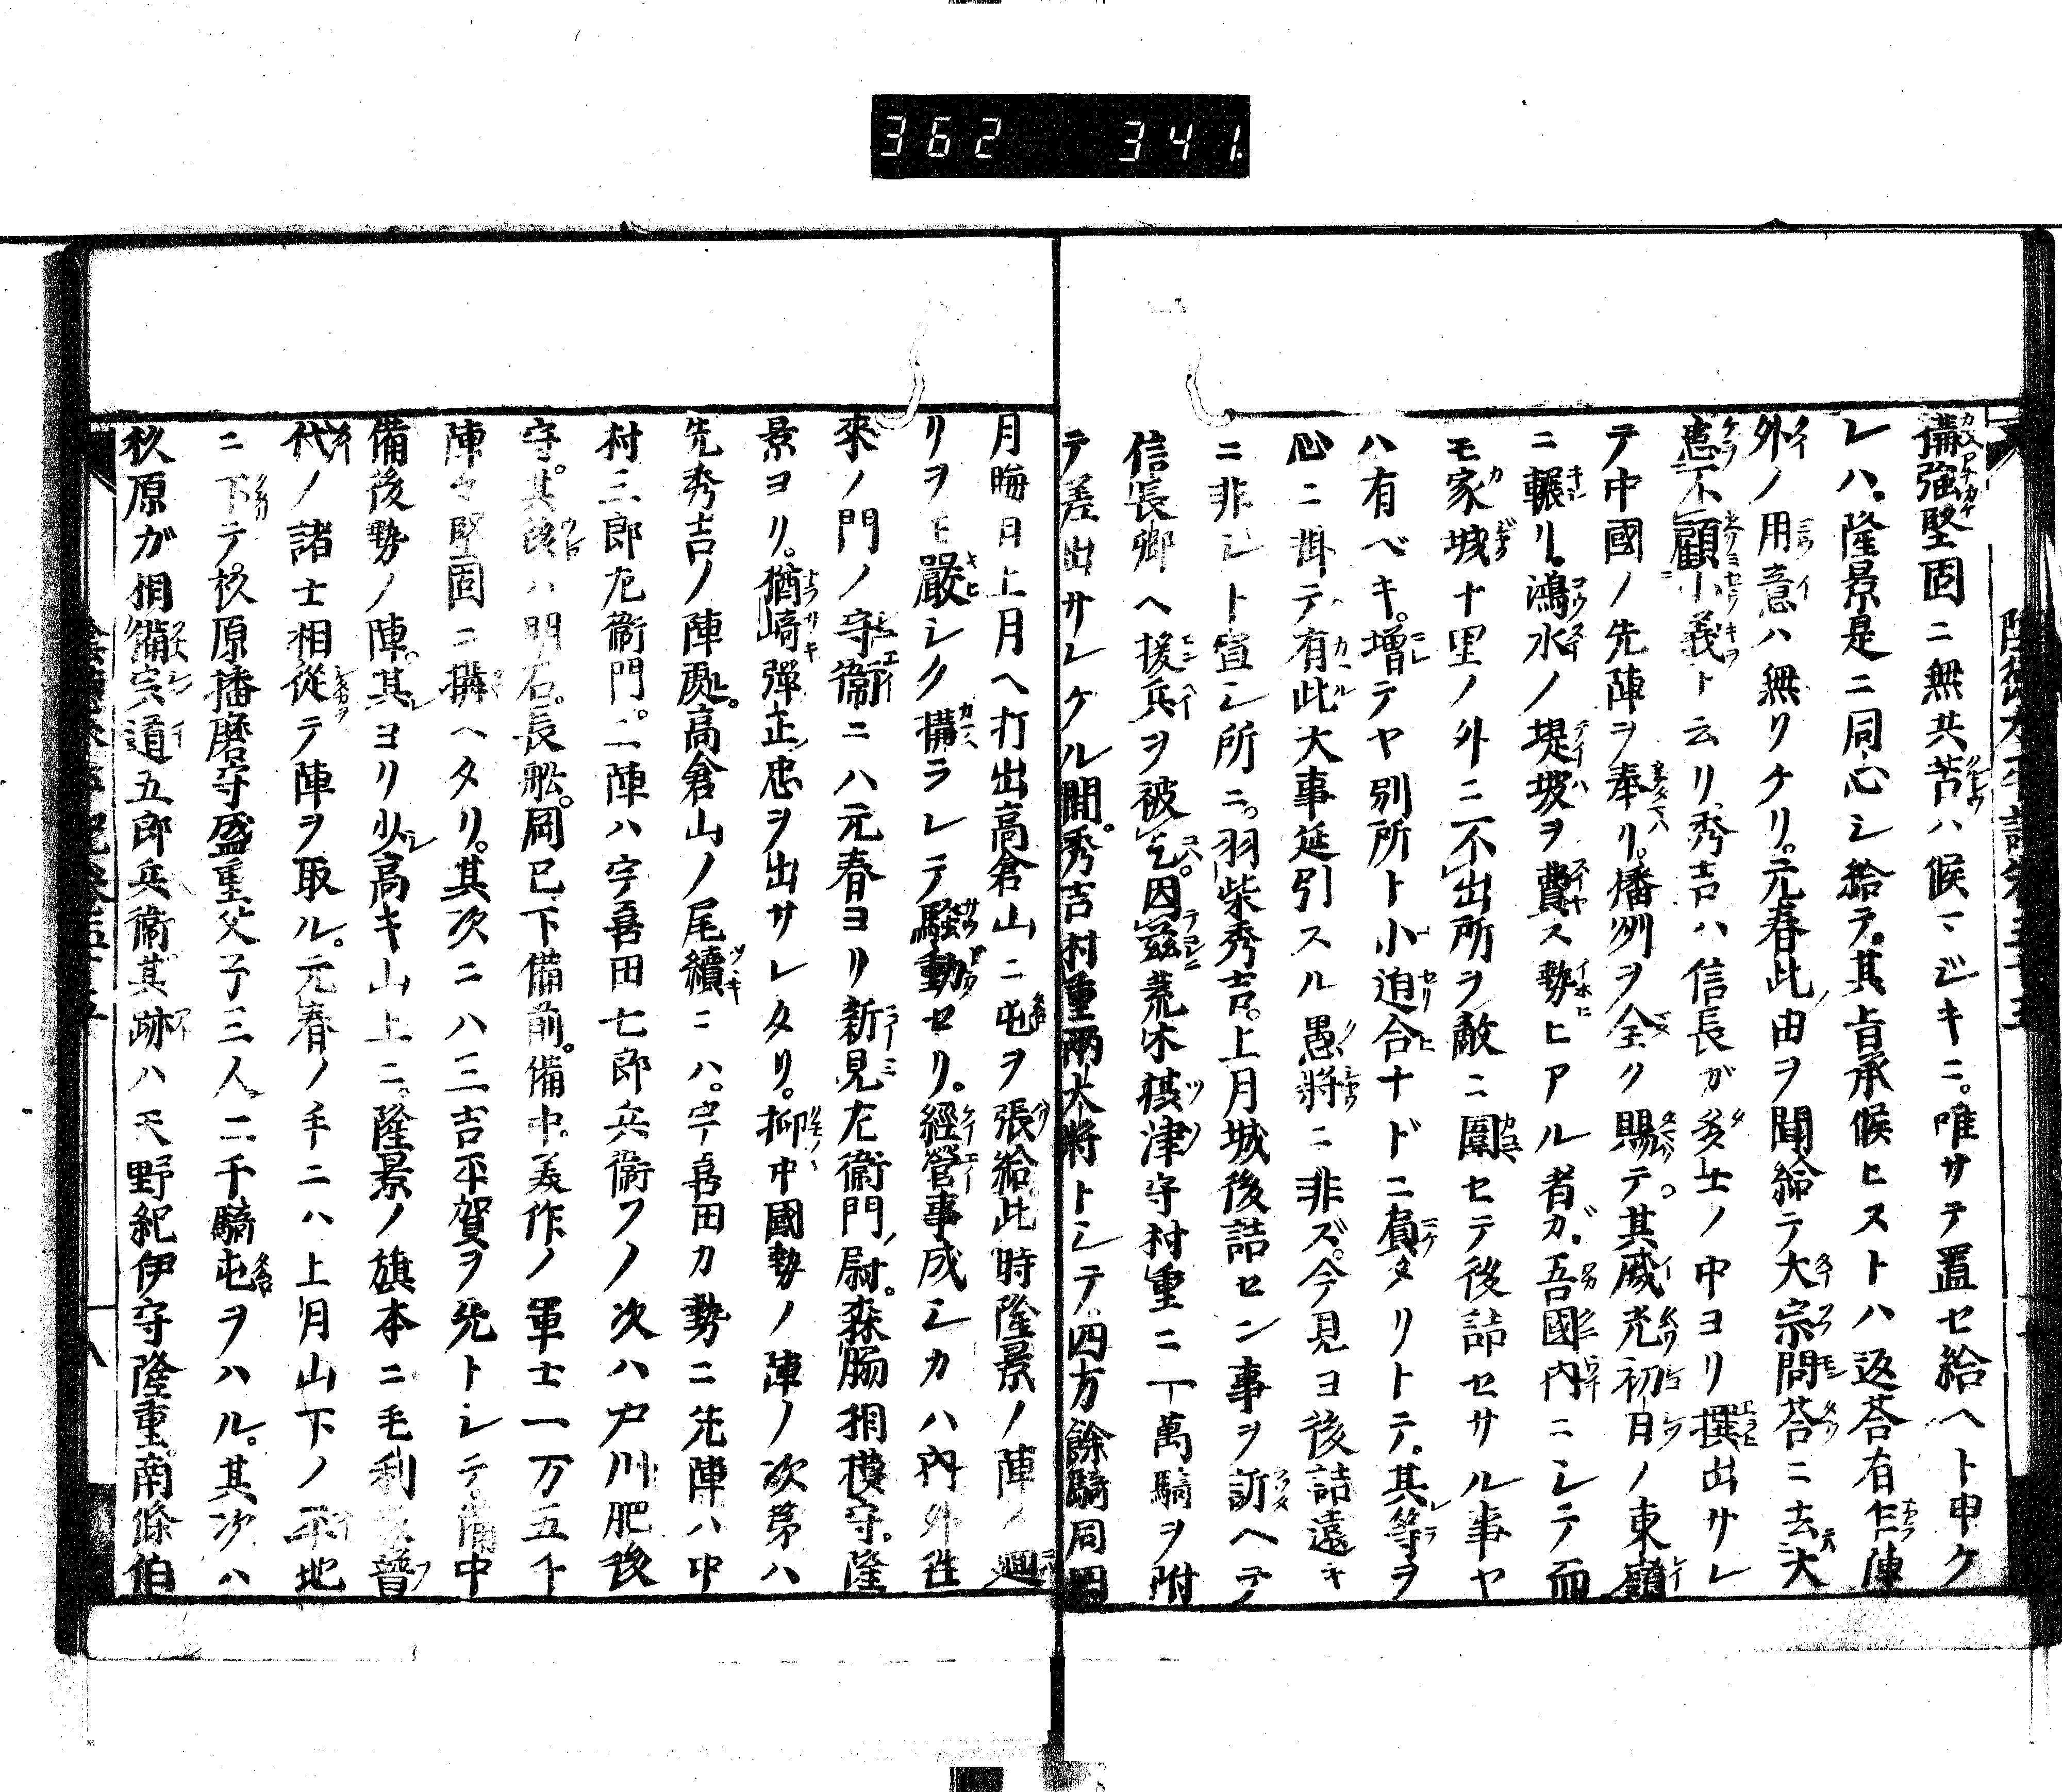 362 341
備強堅固ニ無共苦ハ候マジキニ。唯サテ置セ給ヘト申ケ
レハ。隆景是ニ同心シ給テ。其旨承候ヒヌトハ返荅有乍陣
外ノ用意ハ無リケリ。元春此由ヲ聞給テ大宗問荅ニ去大
恵不顧小義ト云リ、秀吉ハ信長ガ多士ノ中ヨリ撰出サレ
テ中國ノ先陣ヲ奉リ。播州ヲ全ク賜テ。其威光初日ノ東嶺
ニ輾リ。鴻水ノ堤坡ヲ費ス勢ヒアル者ガ。吾國内ニシテ而
モ家城十里ノ外ニ不出所ヲ敵ニ圍セテ後詰セサル事ヤ
ハ有ベキ。増テヤ別所ト小迫合ナドニ負タリトテ。其等ヲ
心ニ掛テ有此大事延引スル愚將ニ非ズ。今見ヨ後詰遠キ
ニ非シト宣シ所ニ。羽柴秀吉。上月城後詰セン事ヲ訴ヘテ
信長卿ヘ援兵ヲ被乞。因茲荒木摂津守村重ニ一萬騎ヲ附
テ差出サレケル間。秀吉村重兩大將トシテ。四万餘騎同四
月晦日上月ヘ打出高倉山ニ屯ヲ張給。此時隆景ノ陣ノ廻
リヲモ嚴シク構ラレテ騒動セリ。經營事成シカハ内外往
來ノ門ノ守衞ニハ元春ヨリ新見左衞門ノ尉。森脇相模守。隆
景ヨリ。猶崎彈正忠ヲ出サレタリ。抑中國勢ノ陣ノ次第ハ
先秀吉ノ陣處。高倉山ノ尾續ニハ。宇喜田カ勢ニ先陣ハ中
村三郎左衞門。二陣ハ宇喜田七郎兵衞フノ次ハ戸川肥後
守。其後ハ明石。長舩。岡已下備前。備中。美作ノ軍士一万五千
陣々堅固ニ搆ヘタリ。其次ニハ三吉平賀ヲ先トシテ。備中
備後勢ノ陣。其ヨリ少高キ山上ニ。隆景ノ旗本ニ毛利家普
代ノ諸士相從テ陣ヲ取ル。元春ノ手ニハ上月山下ノ平地
ニ下テ。杦原播磨守盛重父子三人二千騎屯ヲハル。其次ハ
杦原が相備宗道五郎兵衞其跡ハ天野紀伊守隆重。南條伯
八